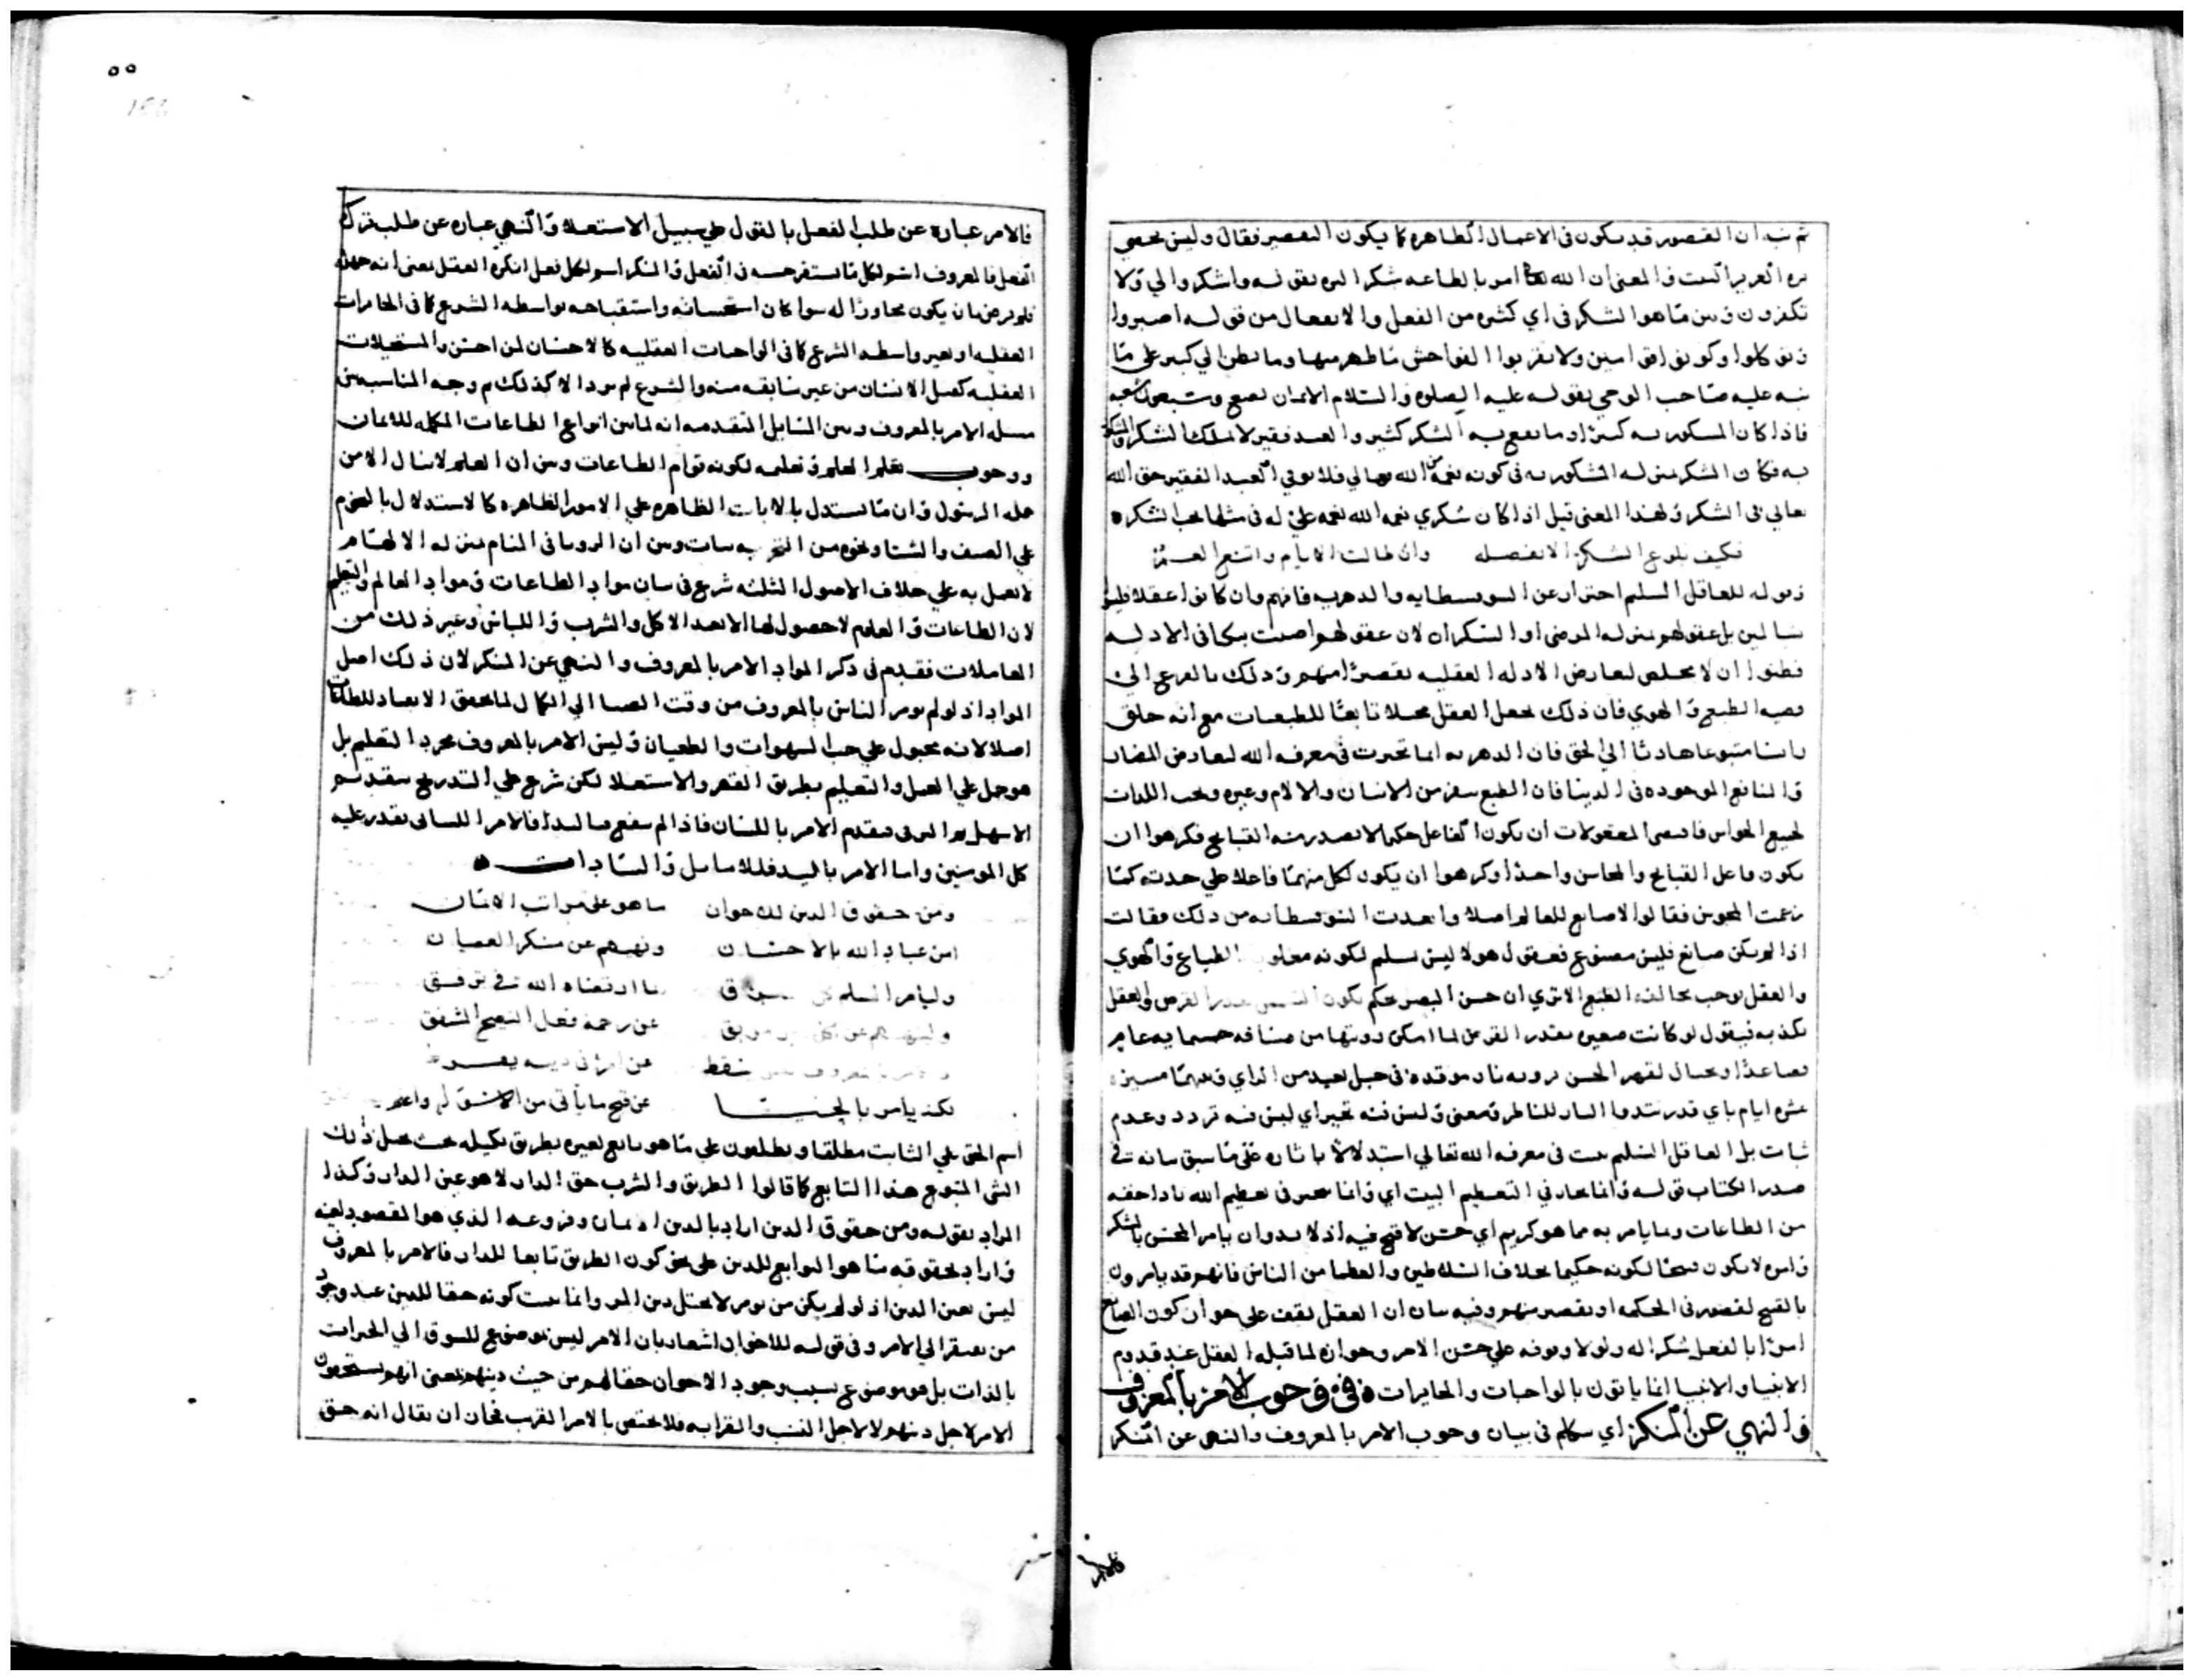 ثم نبه ان القصور قد يكون في الاعمال الظاهره كما يكون التقصير فقال وليس يخفى
والمعنى ان الله تعالى امر بالطاعه شكرا لبره بقوله واشكروا لي ولا
تكفرون وبين ما هو الشكر في اي كثيره من الفعل والانفعال من قوله اصبروا
وقوله كلوا وكونوا قوامين ولا تقربوا الفواحش ما ظهر منها وما بطن الي كبير على ما
نبه عليه صاحب الوحي بقوله عليه الصلوه والسلام الايمان بضع وسبعون شعبه
فاذا كان المشكور به كثيرا وما يقع به الشكر كثير والعبد فقير لا يملك الشكر والمشكور
به فكان الشكر بمنزله المشكور به في كونه نعمة من الله تعالي فلا يوفي العبد الفقير حق الله
تعالي في الشكر ولهذا المعنى قيل اذا كان شكري نعمه الله نعمه علي له في مثلها يجب الشكر ه
فكيف بلوغ الشكر الا بفضله وان طالت الايام واتسع العمر
وقوله للعاقل السليم احتراز عن السوسطايه والدهريه فانهم وان كانوا عقلا فليسوا
سالمين بل عقولهم بمنزله المرضى او السكران لان عقولهم اصيبت بتكافي الادله
فظنوا ان لا مخلص لتعارض الادله العقليه تقصيرا منهم وذلك بالفرع الى
قضيه الطبع والهوي فان ذلك يجعل العقل محلا تابعا للطبعات مع انه خلق
راسا متبوعا هاديا الي الحق فان الدهريه انما تحيرت في معرفه الله لتعارض المضار
والمنافع الموجوده في الدنيا فان الطبع ينفر من الاسنان والالام وغيره ويحب اللذات
لجميع الحواس فاقتضى المعقولات ان يكون الفاعل حكيما لا يصدر منه القبايح فكرهوا ان
يكون فاعل القبايح والمحاسن واحدا وكرهوا ان يكون لكل منهما فاعلا علي حدته كما
زعمت المجوس فقالوا لا صانع للعالم اصلا وابعدت السوسطائيه من ذلك فقالت
اذا لم يكن صانع فليس مصنوع فعقول هولا ليس بسليم لكونه مغلوب الطباع والهوي
والعقل يوجب مخالفه الطبع الا تري ان حسن البصر يحكم بكون الشمس بقدر القرص والعقل
يكذبه فيقول لو كانت صغيره بقدر القرص لما امكن رويتها من مسافه خمسمايه عام
فصاعدا ومحال لقهر الحسن رويه نار موقده في جبل بعيد من الراي وبينهما مسيره
عشره ايام باي قدر تبدوا النار للناظر ومعنى وليس فيه تحير اي ليس فيه تردد وعدم
ثبات بل العاقل السليم يثبت في معرفه الله تعالي استدلالا باثاره على ما سبق بيانه في
صدر الكتاب قوله وانما يحار في التعظيم البيت اي وانما يتحير في تعظيم الله باداحقه
من الطاعات وما يامر به مما هو كريم اي حسن لا قبح فيه اذ لا بد وان يامر المحسن بالشكر
وامره لا يكون قبيحا لكونه حكيما بخلاف السلاطين والعظما من الناس فانهم قد يامرون
بالقبيح لقصور في الحكمه او تقصير منهم وفيه بيان ان العقل يقف على جواز كون الصانع
امرا بالفعل شكرا له ولولا وقوفه علي حسن الامر وجوازه لما قبله العقل عند قدوم
الانبيا والانبيا انما ياتون بالواجبات والجايزات ه في وجوب الامر بالمعروف
والنهي عن المنكر اي كلام في بيان وجوب الامر بالمعروف والنهي عن المنكر
فالامر
٥٥
فالامر عباره عن طلب الفعل بالقول علي سبيل الاستعلا والنهي عباره عن طلب ترك
الفعل فالمعروف اسم لكل ما يستقر حسنه في الفعل والمنكر اسم لكل فعل انكره العقل بمعنى انه
فلم يرض بان يكون مجاوزا له سوا كان استحسانه واستقباحه بواسطه الشرع كما في الجايزات
العقليه او بغير واسطه الشرع كما في الواجبات العقليه كالاحسان لمن احسن والمستحيلات
العقليه كقتل الانسان من غير سابقه منه والشرع لم يرد الا كذلك ثم وجه المناسبه بين
مسله الامر بالمعروف وبين المسايل المتقدمه انه لما بين انواع الطاعات المكمله للايمان
ووجوب تعلم العلم وتعليمه لكونه قوام الطاعات وبين ان العلم لا ينال الا من
جهه الرسول وان ما يستدل بالايات الظاهره علي الامور الظاهره كالاستدلال بالنجوم
علي الصيف والشتا ونحوه من التجربيات وبين ان الرويا في المنام بمنزله الالهام
لا يعمل به على خلاف الاصول الثلثه شرع في بيان مواد الطاعات ومواد العالم والتعليم
لان الطاعات والعلوم لا حصول لها الا بعد الاكل والشرب واللباس وغير ذلك من
المعاملات فقدم في ذكر المواد الامر بالمعروف والنهي عن المنكر لان ذلك اصل
المواد اذ لو لم يومر الناس بالمعروف من وقت الصبا الي الكمال لما تحقق الانقياد للطاعات
اصلا لانه مجبول علي حب الشهوات والطغيان وليس الامر بالمعروف مجرد التعليم بل
هو حمل علي العمل والتعليم بطريق القهر والاستعلا لكن شرع علي التدريج بتقديم
الاسهل فيقدم الامر باللسان فاذا لم ينفع فباليد فالامر اللساني يقدر عليه
كل المومنين واما الامر باليد فللاماثل والسادات ه
ومن حقوق الدين للاخوان ما هو على مراتب الايمان
امر عباد الله بالاحسان ونهيهم عن منكر العصيان
وليامر ما ارتضاه الله في توفيق
ولينههم عن كل عن رحمة فعل النصيح المشفق
فقط
لكنه يامر بالجنسا
اسم الحق علي الثابت مطلقا ويطلقون علي ما هو تابع لغيره بطريق تكميله بحيث يجعل ذلك
الشي المتبوع هذا التابع كما قالوا الطريق والشرب حق الدار لا هو عين الدار وكذا
المراد بقوله ومن حقوق الدين اراد بالدين الايمان وفروعه الذي هو المقصود لعينه
واراد بحقوقه ما هو التوابع للدين على نحو كون الطريق تابعا للدار فالامر بالمعروف
ليس بعين الدين اذ لو لم يكن من يومر لا يختل دين المر وانما يثبت كونه حقا للدين عند وجود
من يفتقر الي الامر وفي قوله للاخوان اشعار بان الامر ليس بموضوع للسوق الي الخيرات
بالذات بل هو موضوع بسبب وجود الاخوان حقا لهم من حيث دينهم بمعنى انهم يستحقون
الامر لاجل دينهم لا لاجل النسب والقرابه فلا يختص بالامر القريب فجاز ان يقال انه حق